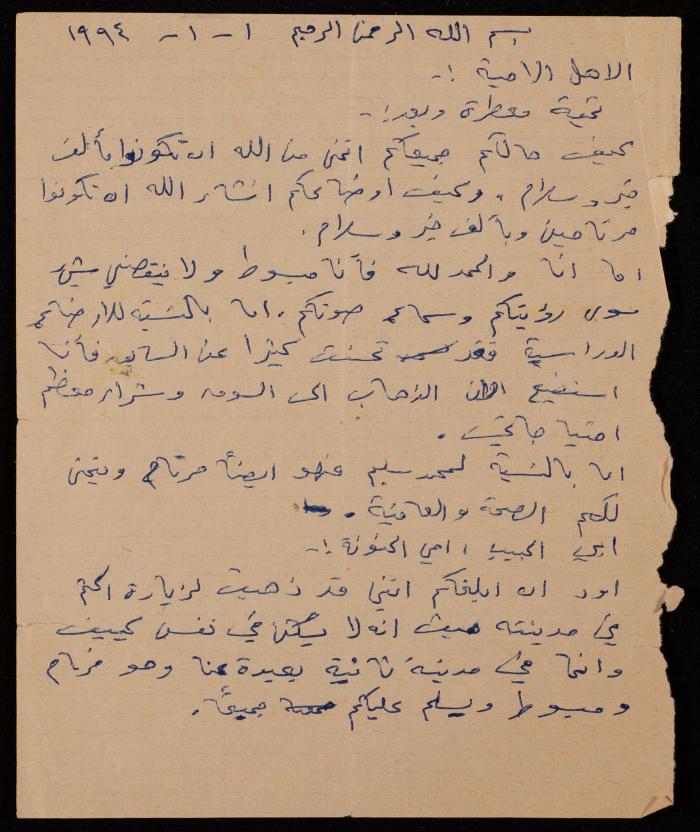 بسم الله الرحمن الرحيم ١ - ١ - ١٩٩٤
الاهل الاحبة :-
تحية معطرة وبعد :-
كيف حالكم جميعكم اتمنى من الله ان تكونوا بألف
خير وسلام . وكيف اوضاعكم انشاء الله ان تكونوا
مرتاحين وبألف خير وسلام .
اما انا والحمد لله فأنا مبسوط ولا ينقصني شيء
سوى رؤيتكم وسماع صوتكم . اما بالنسبة للاوضاع
الدراسية فقد تحسنت كثيرا عن السابق فأنا
استطيع الان الذهاب الى السوق وشراء معظم
احتياجاتي .
اما بالنسبة لمحمد سليم فهو ايضاً مرتاح ويتمنى
لكم الصحة والعافية .
ابي الحبيب ، امي الحنونة :-
اود ان ابلغكم انني قد ذهبت لزيارة اكثم
في مدينته حيث انه لا يسكن في نفس كييف
وانما في مدينة ثانية بعيدة عنا وهو مرتاح
ومبسوط ويسلم عليكم جميعاً .